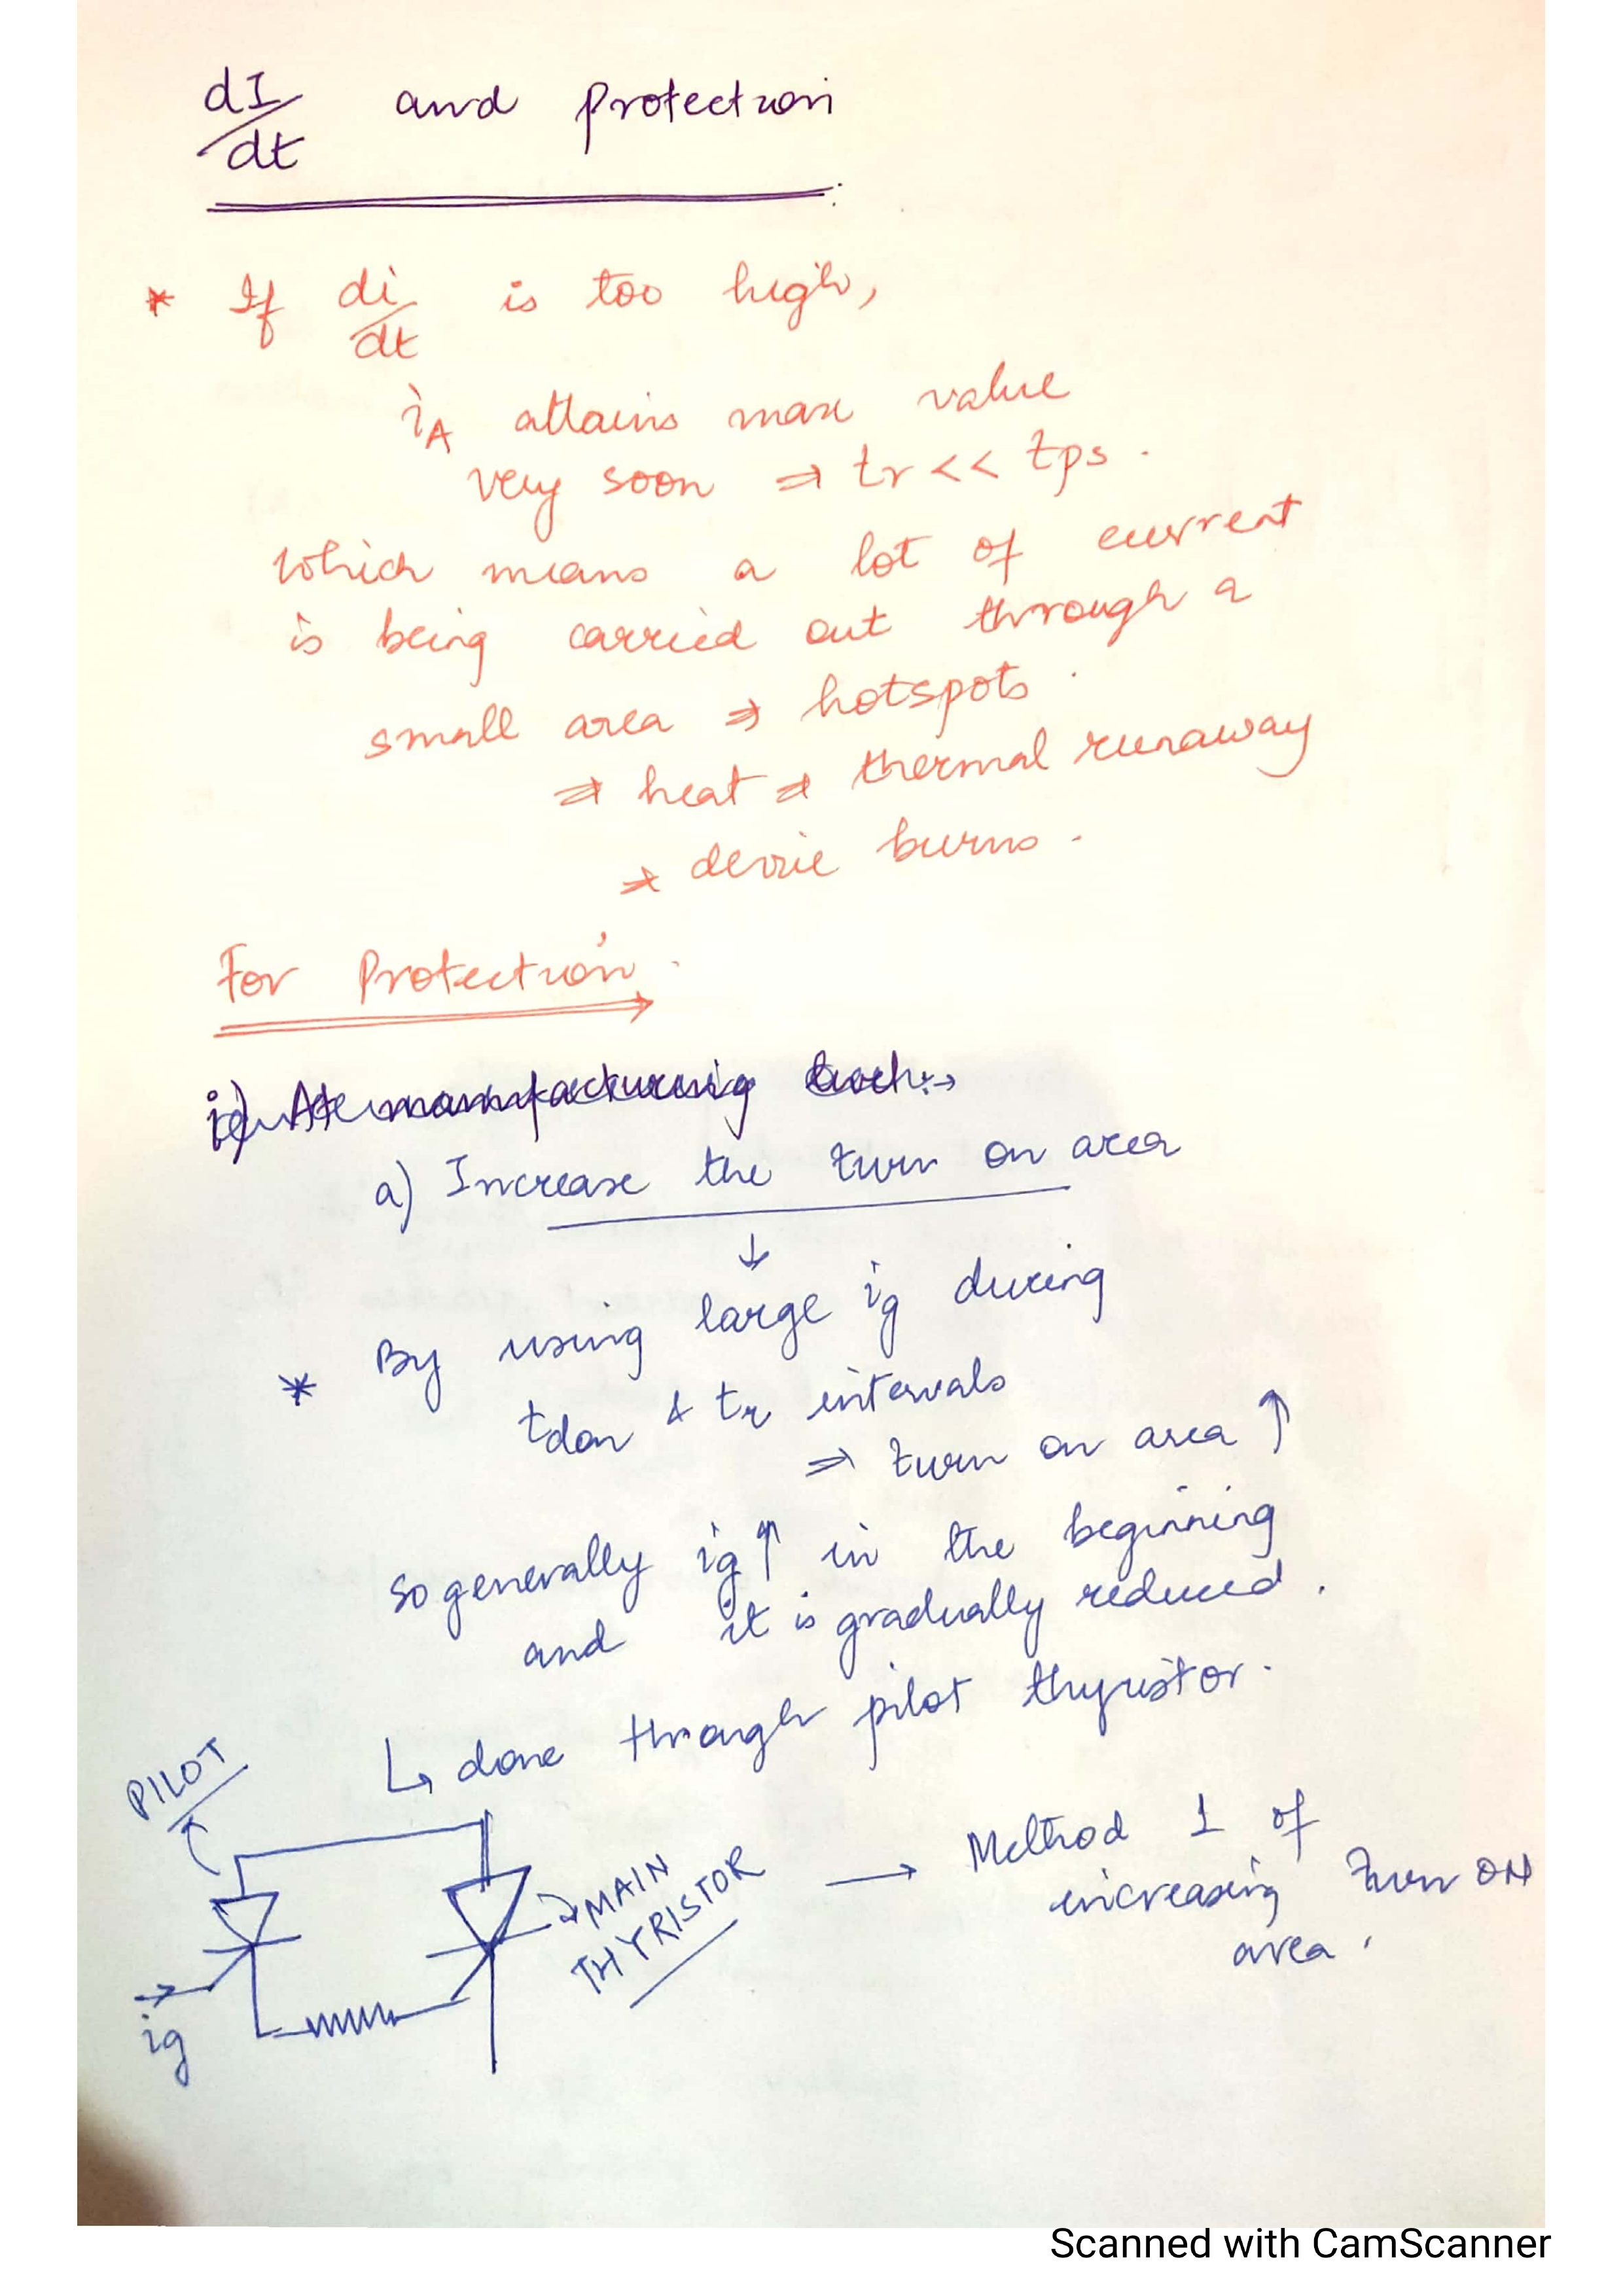 dI/dt and Protection :
* If di/dt is too high,
iA attains max value
very soon ⇒ tr << tps .
which means a lot of current
is being carried out through a
small area ⇒ hotspots .
⇒ heat ⇒ thermal runaway
⇒ device burns .
For Protection .
a) Increase the turn on area
↓
* By using large ig during
tdon & tr intervals
⇒ turn on area ↑
so generally ig↑ in the beginning
and it is gradually reduced .
↳ done through pilot thyristor .
PILOT
MAIN
THYRISTOR
→ Method 1 of
increasing turn ON
area .
ig
Scanned with CamScanner